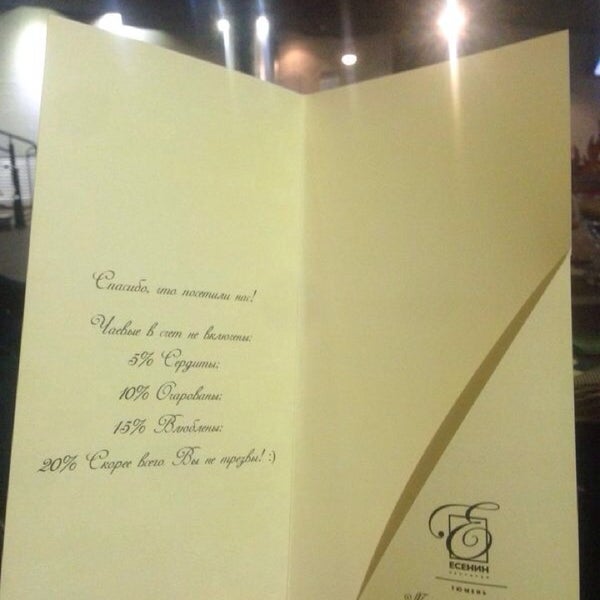 Спасибо, что посетили нас!
Чаевые в счет не включены:
5% Сердиты;
10% Очарованы;
15% Влюблены;
20% Скорее всего Вы не трезвы! :)
Е
ЕСЕНИН
ТЮМЕНЬ